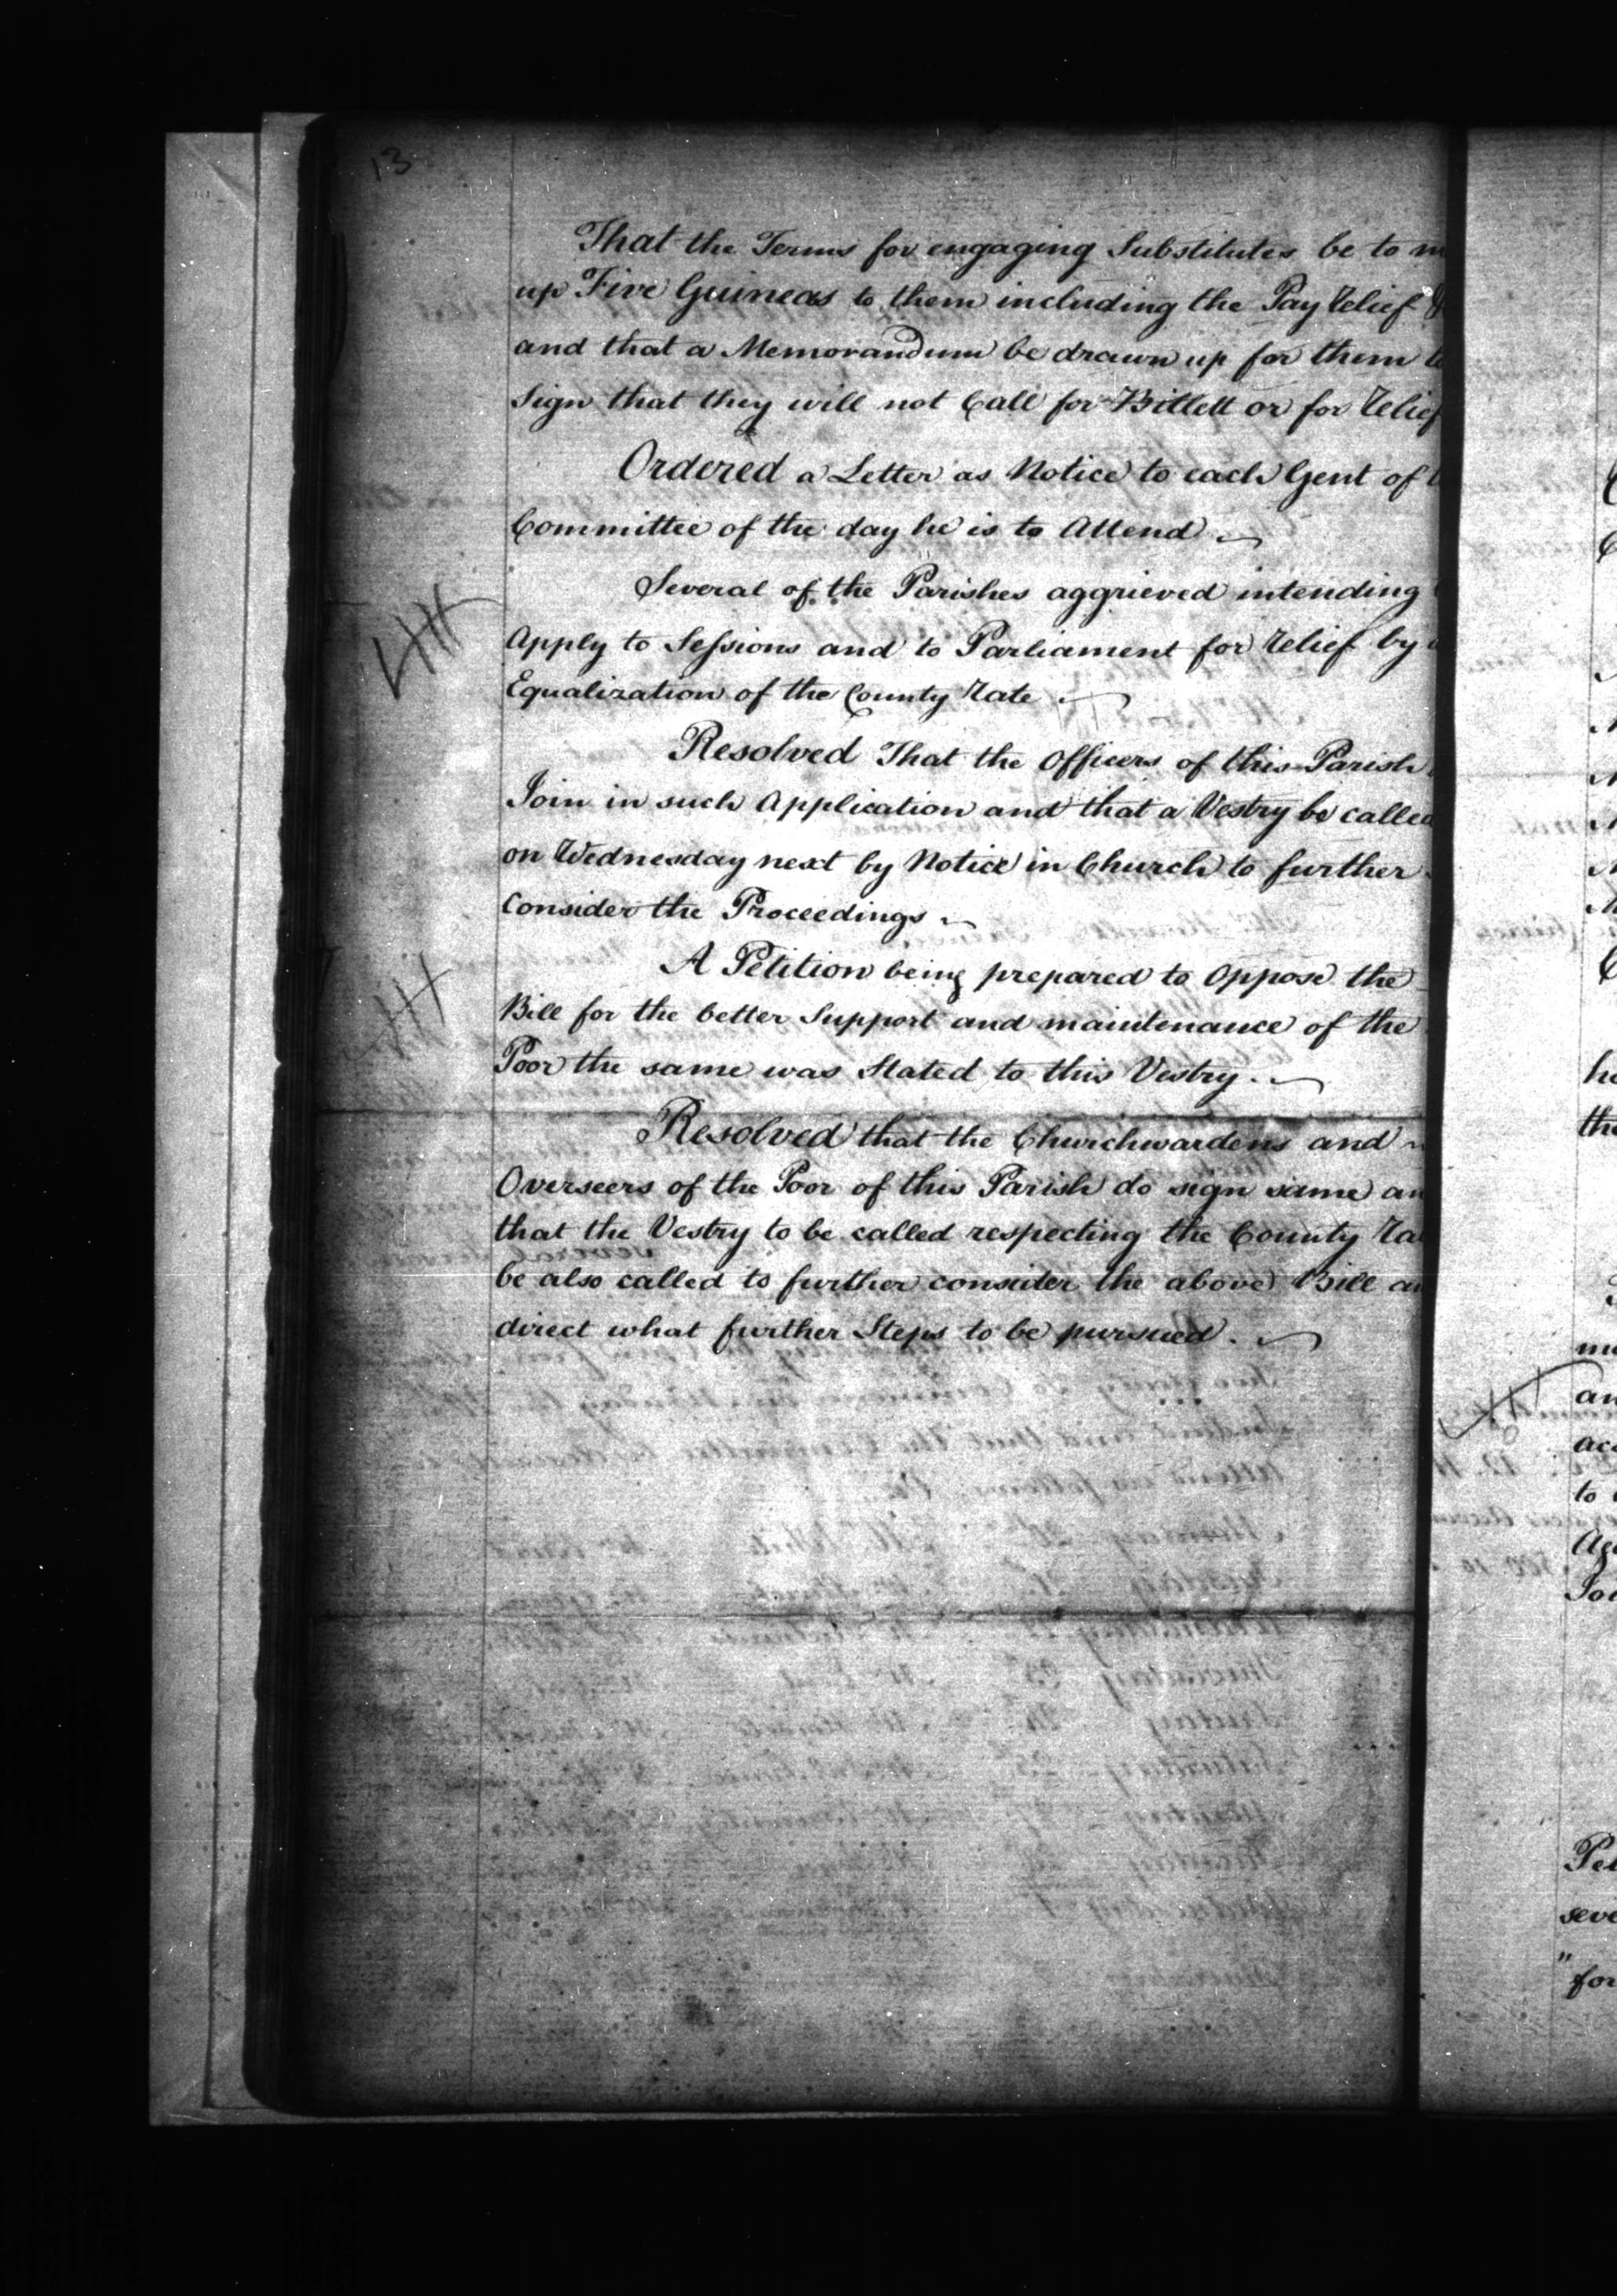 13
That the Terms for engaging Substitutes be to m
up Five Guineas to them including the Pay Relief &
and that a Memorandum be drawn up for them to
Sign that they will not Call for Billett or for Relief
Ordered a Letter as Notice to each Gent of
Committee of the day he is to Attend
Several of the Parishes aggrieved intending
Apply to Sessions and to Parliament for Relief by
Equalization of the County Rate
Resolved That the Officers of this Parish
Join in such Application and that a Vestry be called
on Wednesday next by Notice in Church to further
Consider the Proceedings
A Petition being prepared to Oppose the
Bill for the better Support and maintenance of the
Poor the same was Stated to this Vestry.
Resolved that the Churchwardens and
Overseers of the Poor of this Parish do sign same an
that the Vestry to be called respecting the County Ra
be also called to further consider the above Bill an
direct what further Steps to be pursued.
he
the
an
acc
to
Ag
Joi
Pet
seve
"for